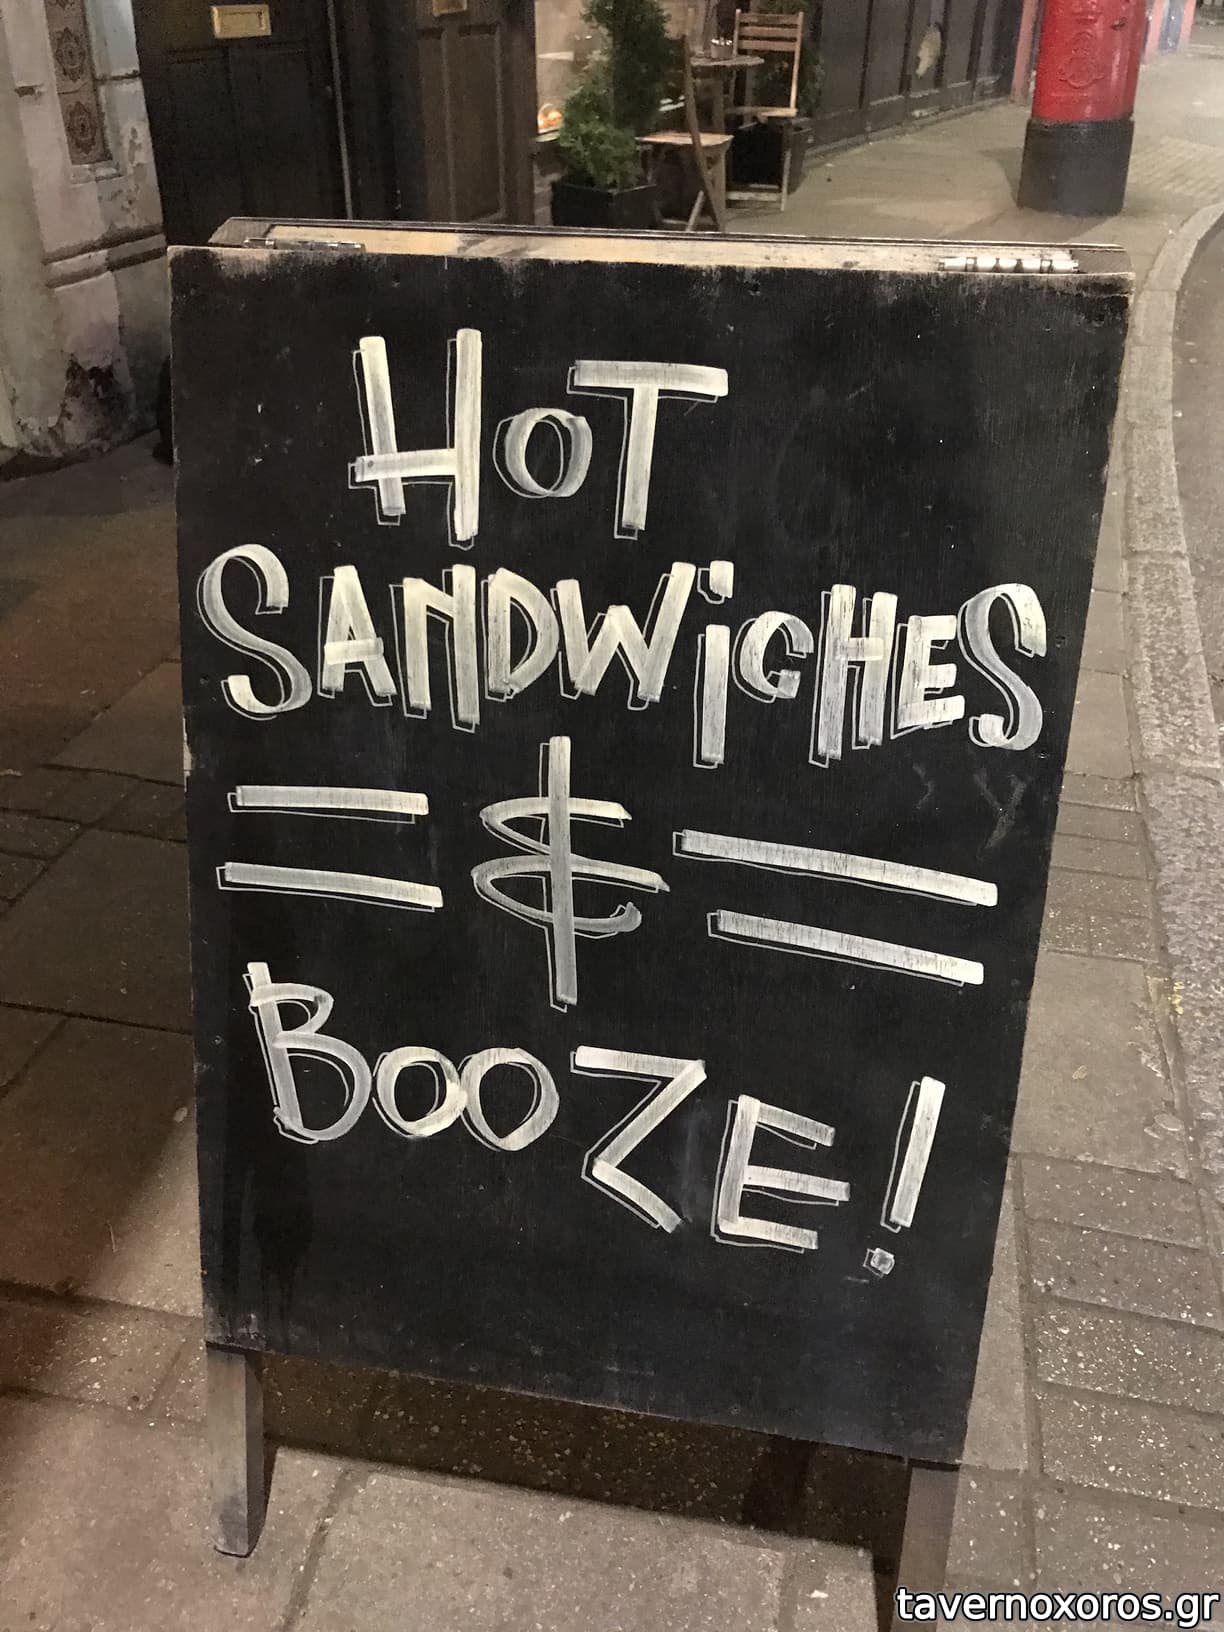 HOT
SANDWiCHES
= & =
BOOZE!
tavernoxoros.gr